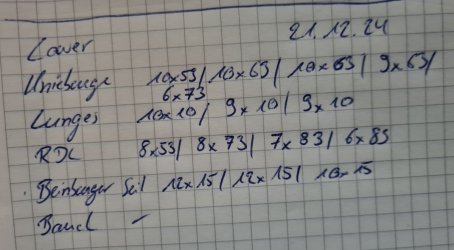 21.12.24
Lower
Kniebeuge 10x53/ 10x63/ 10x63/ 9x63/
6x73
Lunges 10x10/ 9x10/ 9x10
RDL 8x53/ 8x73/ 7x83/ 6x83
Beinbeuger Seil 12x15/ 12x15/ 10x15
Bauch –